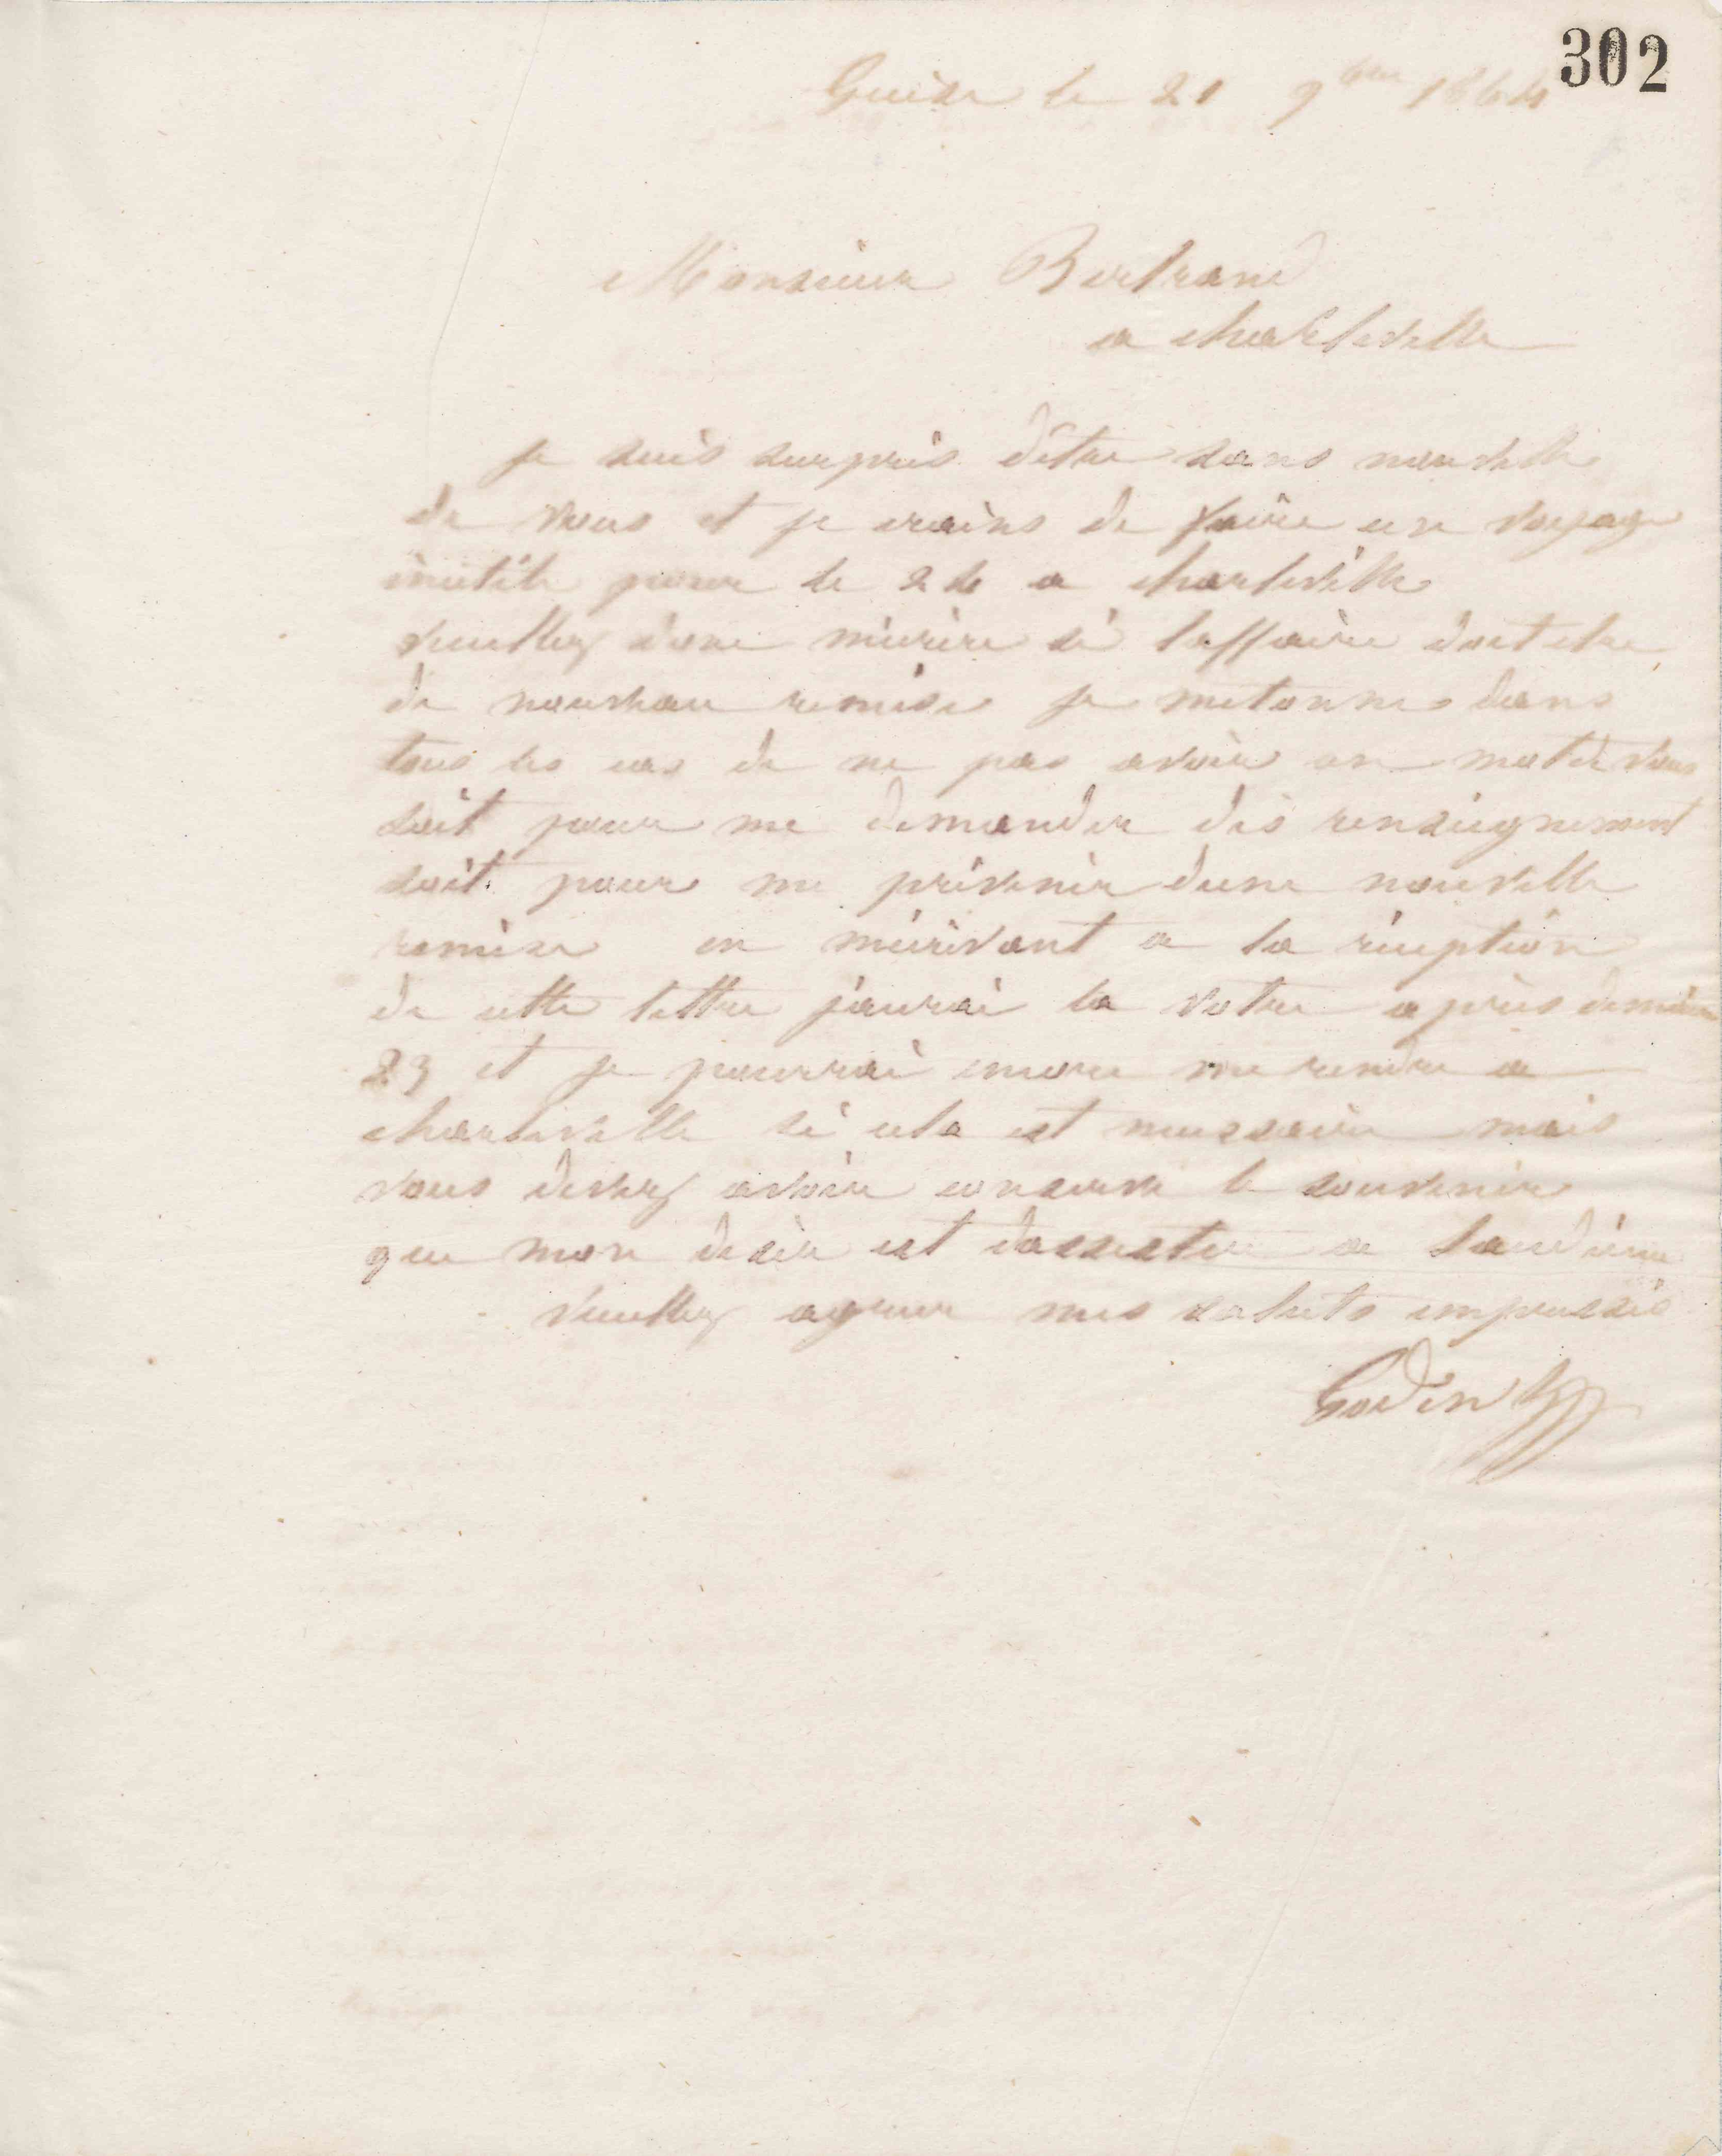 302
Guise le 21 9bre 1864
Monsieur Bertrand
a charleville
je suis surpris d'être sans nouvelle
de vous et je crains de faire un voyage
inutile pour le 24 a charleville
veuillez donc mécrire si laffaire doit etre
de nouveau remise je metonne dans
tous les cas de ne pas avoir un mot de vous
soit pour me demander des renseignement
soit pour me prévenir dune nouvelle
remise en mécrivant a la réception
de cette lettre jaurai la votre après demain
23 et je pourrai encore me rendre a
charleville si cela est necessaire mais
vous devez avoir conservé le souvenir
que mon desir est dassister a laudience
veuillez agreer mes saluts empressés
Godin